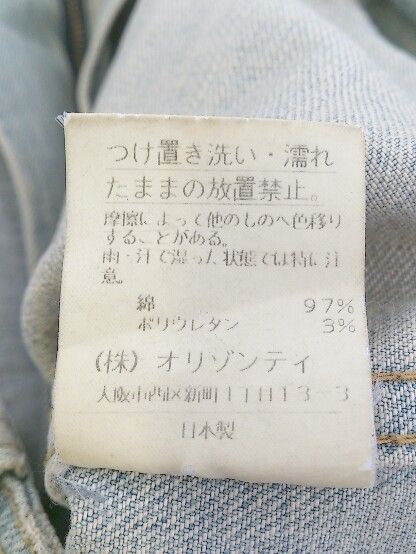 つけ置き洗い・濡れ
たままの放置禁止。
摩擦によって他のものへ色移り
することがある。
雨・汗で湿った状態では特に注
意。
綿 97%
ポリウレタン 3%
(株) オリゾンティ
大阪市西区新町1丁目13-3
日本製